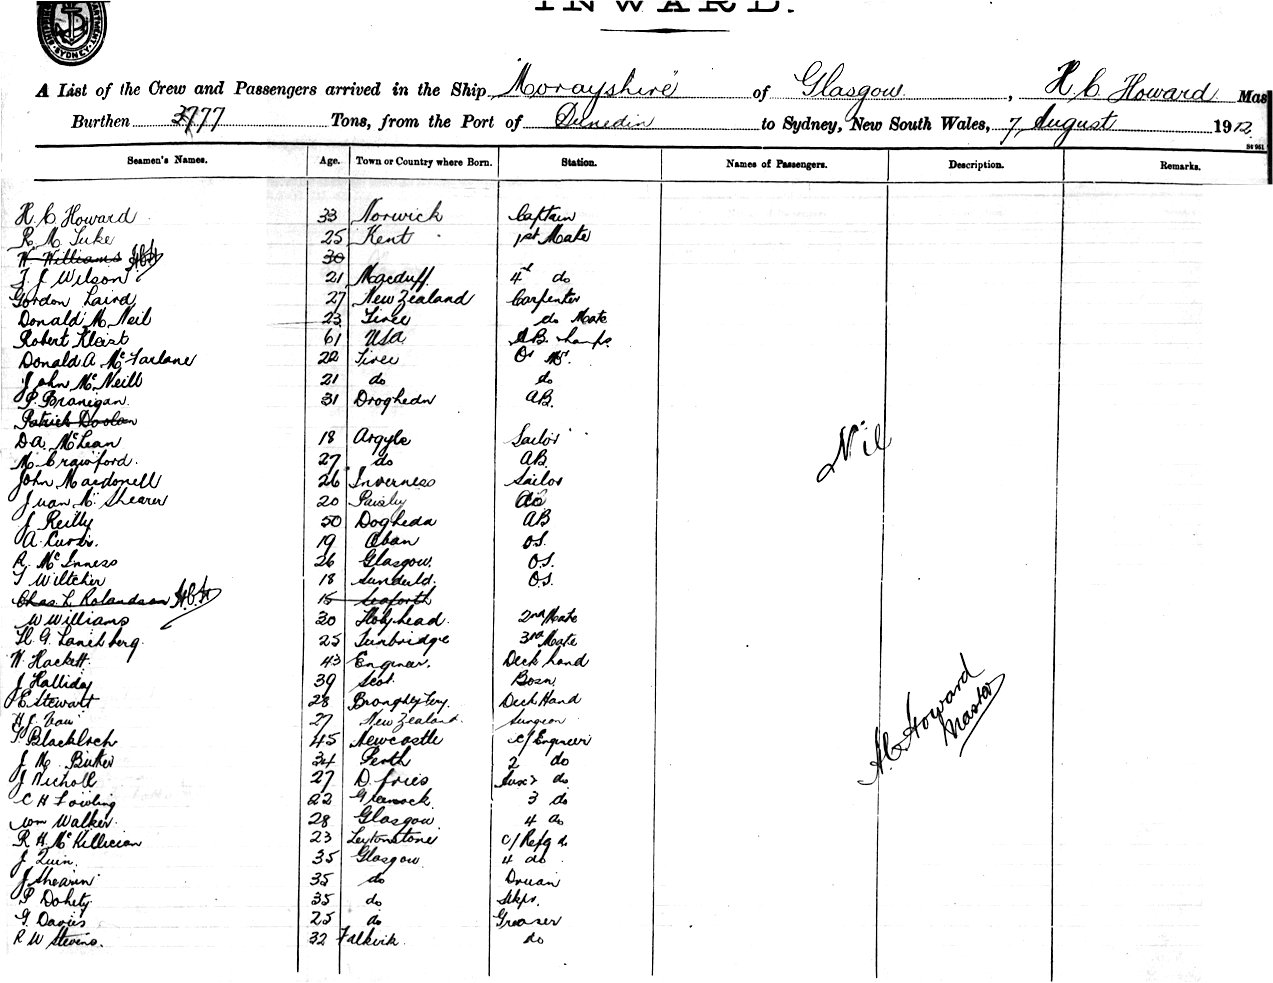 INWARD.
SYDNEY
A List of the Crew and Passengers arrived in the Ship Morayshire of Glasgow, H C Howard Mas
Burthen 3777 Tons, from the Port of Dunedin to Sydney, New South Wales, 7 August 1912.
Seamen's Names. Age. Town or Country where Born. Station. Names of Passengers. Description. Remarks.
H. C Howard 33 Norwick Captain
R. M. Tuke 25 Kent 1st Mate
W Williams HCH 30
T. J Wilson 21 Macduff 4th do
Gordon Laird 27 New Zealand Carpenter
Donald Mc Neil 23 Tiree do Mate
Robert Kleist 61 USA AB.
Donald A. Mc Farlane 22 Tiree
John Mc Neill 21 do do
P. Branigan. 31 Drogheda AB.
Patrick Doolan
D. A. McLean 18 Argyle Sailor
M. Crawford. 27 do AB
Nil
John Macdonell 26 Inverness Sailor
Juan Mc Shearer 20 Paisley do
J Reilly 50 Dogheda AB
A. Curtis. 19 Oban O.S.
R. Mc Inness 26 Glasgow. O.S.
T Wiltcher 18 Sunderld. O.S.
Chas L Rolandson H.C.H 15 Seaforth
W Williams 30 Holyhead. 2nd Mate
25 Tunbridge 3rd Mate
W. Hackett. 43 Deck hand
J Halliday 39 Scot. Bosn.
J E Stewart 28 Deck Hand
H C Howard
Master
27 New Zealand. Surgeon
Blackloch 45 Newcastle c/Engineer
J M. Butter 34 Perth 2 do
J Nicholl 27 D. fries do
C H 22 Greenock. 3 do
Wm Walker. 28 Glasgow 4 do
R H. McKillician 23 Leytonstone c/Refg do
J Quin. 35 Glasgow 4 do
J Shearin 35 do
P Dohety 35 do Skpr.
G. Davies 25 do Greaser
R W Stevens. 32 Falkirk. do